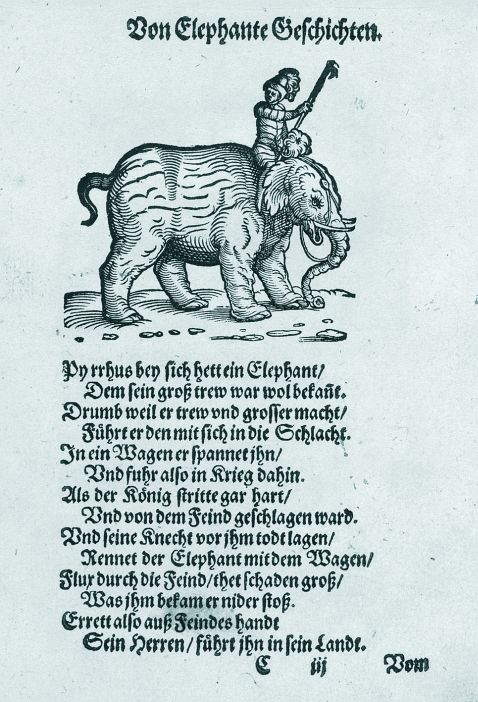 Von Elephante Geschichten.
Pyrrhus bey sich hett ein Elephant/
Dem sein groß trew war wol bekañt.
Drumb weil er trew vnd grosser macht/
Führt er den mit sich in die Schlacht.
In ein Wagen er spannet jhn/
Vnd fuhr also in Krieg dahin.
Als der König stritte gar hart/
Vnd von dem Feind geschlagen ward.
Vnd seine Knecht vor jhm todt lagen/
Rennet der Elephant mit dem Wagen/
Flux durch die Feind/ thet schaden groß/
Was jhm bekam er nider stoß.
Errett also auß Feindes handt
Sein Herren/ führt jhn in sein Landt.
C iij Vom